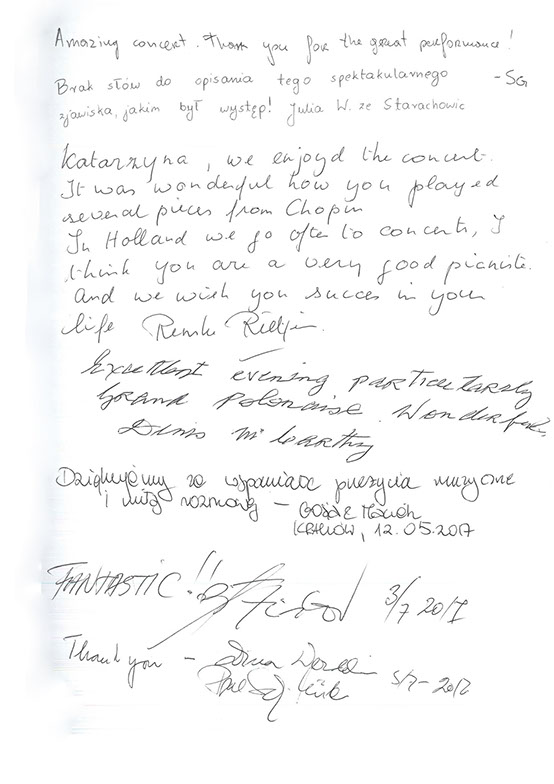 Amazing concert. Thank you for the great performance!
Brak słów do opisania tego spektakularnego - SG
zjawiska, jakim był występ! Julia W. ze Starachowic
Katarzyna, we enjoyd the concert.
It was wonderful how you played
several pieces from Chopin
In Holland we go often to concerts, I
think you are a very good pianiste.
And we wish you succes in your
life
Excellent evening particularly
Grand Polonaise. Wonderful.
Denis McCarthy
Dziękujemy za wspaniałe przeżycia muzyczne
i miłą rozmowę -
KRAKÓW, 12.05.2017
FANTASTIC!! 3/7 2017
Thank you - 5/7-2017